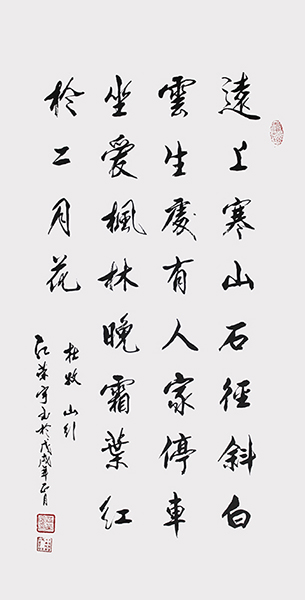 遠上寒山石徑斜白
雲生處有人家停車
坐爱楓林晚霜葉红
於二月花
杜牧 山行
於戊戌年正月